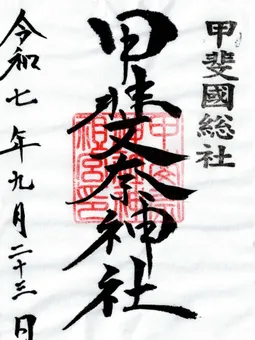 甲斐國総社
甲斐奈神社
令和七年九月二十三日